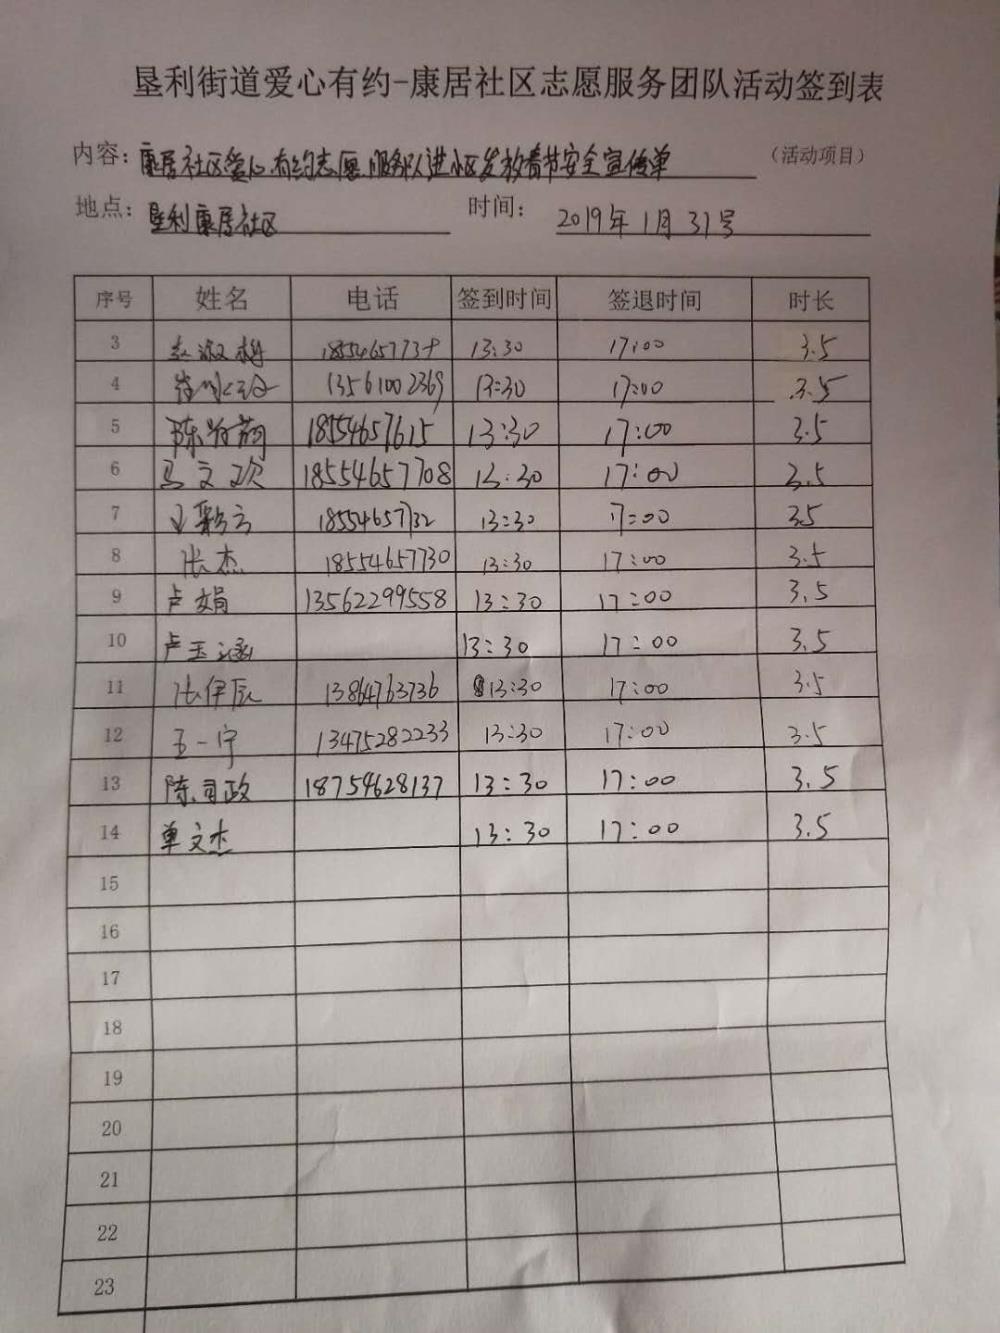 垦利街道爱心有约-康居社区志愿服务团队活动签到表
内容：康居社区爱心有约志愿服务队进小区发放春节安全宣传单 （活动项目）
地点：垦利康居社区 时间：2019年1月31号
序号 姓名 电话 签到时间 签退时间 时长
3 13:30 17:00 3.5
4 13561002369 13:30 17:00 3.5
5 18554657615 13:30 17:00 3.5
6 马文欢 18554657708 13:30 17:00 3.5
7 18554657732 13:30 17:00 3.5
8 张杰 18554657730 13:30 17:00 3.5
9 卢娟 13562299558 13:30 17:00 3.5
10 卢玉涵 13:30 17:00 3.5
11 张伊辰 13864763736 13:30 17:00 3.5
12 王一宁 13475282233 13:30 17:00 3.5
13 陈司政 18754628137 13:30 17:00 3.5
14 单文杰 13:30 17:00 3.5
15
16
17
18
19
20
21
22
23